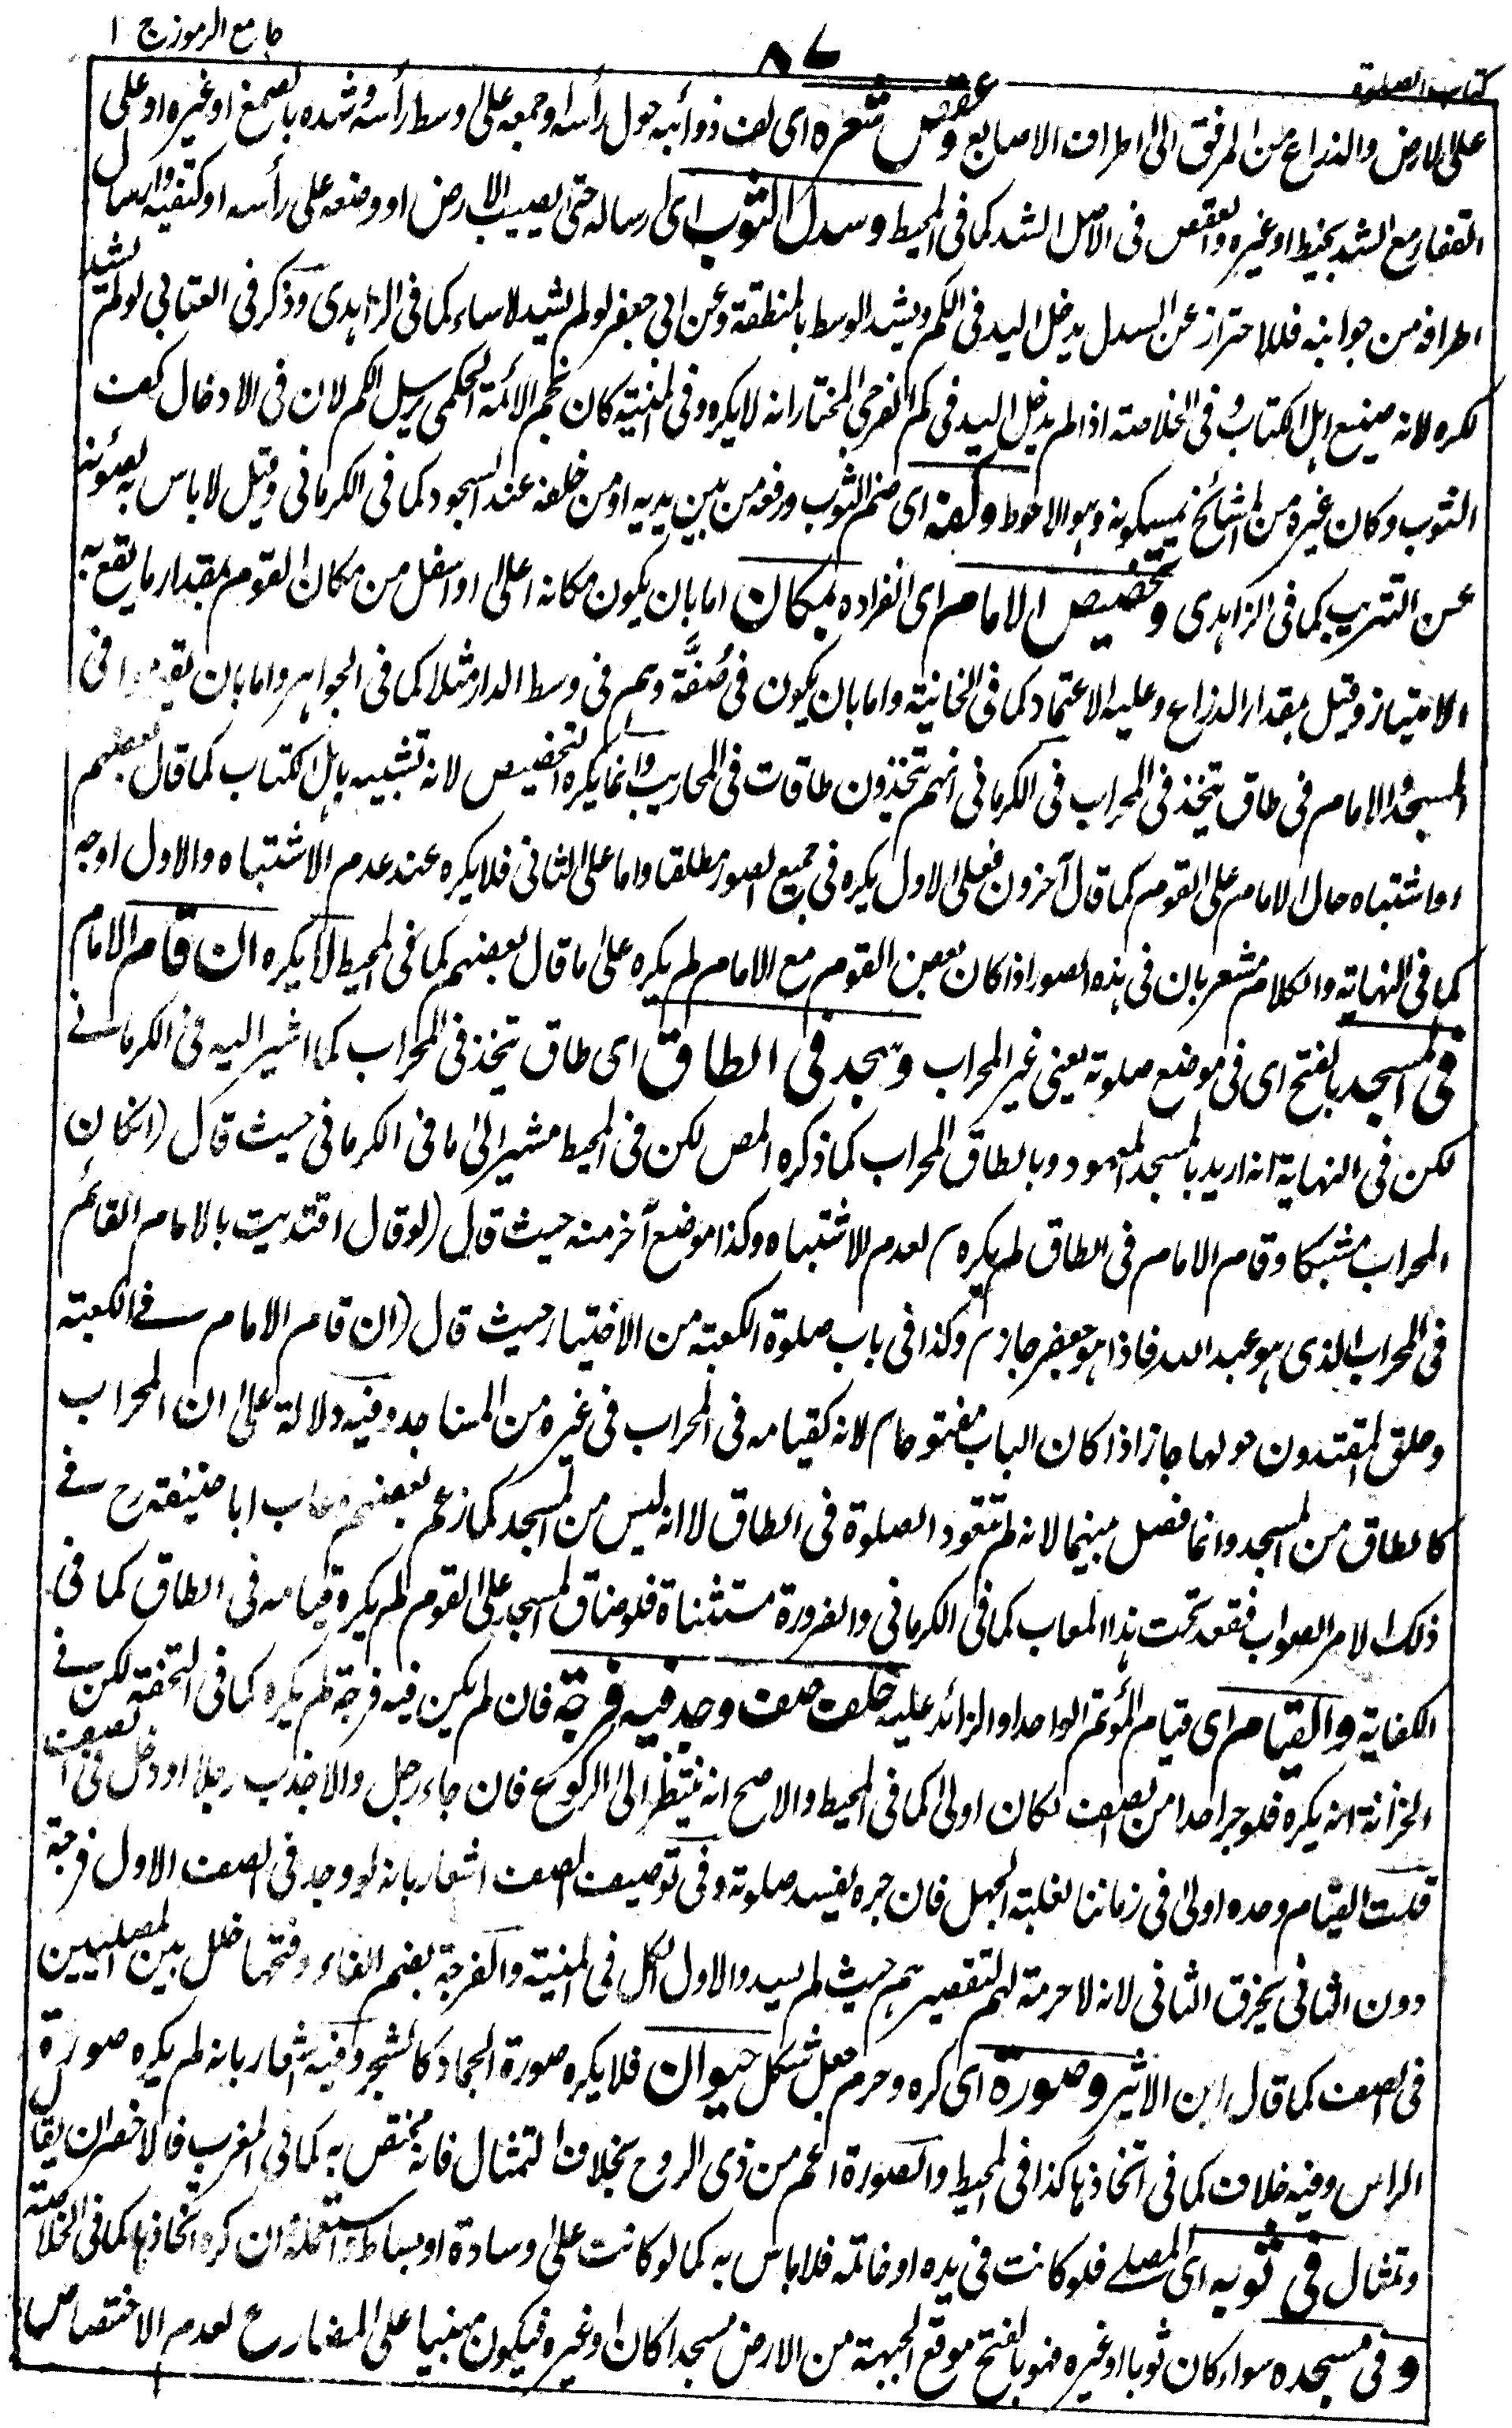 جامع الرموز ج ١
٨٧
كتاب الصلوة
على الارض والذراع من المرفق الى اطراف الاصابع وعقص شعره اى لف ذوائبه حول رأسه او جمعه على وسط رأسه وشده بالصمغ او غيره او على
القفا مع الشد بخيط او غيره والعقص فى الاصل الشد كما فى المحيط وسدل الثوب اى ارساله حتى يصيب الارض او وضعه على رأسه او كتفيه وارسال
اطرافه من جوانبه فللاحتراز عن السدل يدخل اليد فى الكم ويشد الوسط بالمنطقة وعن ابى جعفر لو لم يشد لاساء كما فى الزاهدى وذكر فى العتابى لو لم يشد
لكره لانه صنيع اهل الكتاب وفى الخلاصة اذا لم يدخل اليد فى كم الفرجى المختار انه لا يكره وفى المنية كان نجم الائمة الحكمى يرسل الكم لان فى الادخال كف
الثوب وكان غيره من المشائخ يمسكونه وهو الاحوط وكفه اى ضم الثوب ورفعه من بين يديه او من خلفه عند السجود كما فى الكرمانى وقيل لا باس به لصونه
عن التتريب كما فى الزاهدى وتخصيص الامام اى انفراده بمكان اما بان يكون مكانه اعلى او اسفل من مكان القوم بمقدار ما يقع به
الامتياز وقيل بمقدار الذراع وعليه الاعتماد كما فى الخانية واما بان يكون فى صُفَّة وهم فى وسط الدار مثلا كما فى الجواهر واما بان يقوموا فى
المسجد والامام فى طاق يتخذ فى المحراب فى الكرمانى انهم يتخذون طاقات فى المحاريب وانما يكره التخصيص لانه تشبيه باهل الكتاب كما قال بعضهم
او اشتباه حال الامام على القوم كما قال آخرون فعلى الاول يكره فى جميع الصور مطلقا واما على الثانى فلا يكره عند عدم الاشتباه والاول اوجه
كما فى النهاية والكلام مشعر بان فى هذه الصور اذا كان بعض القوم مع الامام لم يكره على ما قال بعضهم كما فى المحيط لا يكره ان قام الامام
فى المسجد بالفتح اى فى موضع صلوته يعنى غير المحراب وسجد فى الطاق اى طاق يتخذ فى المحراب كما اشير اليه فى الكرمانى
لكن فى النهاية انه اريد بالمسجد المعهود وبالطاق المحراب كما ذكره المص لكن فى المحيط مشير الى ما فى الكرمانى حيث قال (ان كان
المحراب مشبكا وقام الامام فى الطاق لم يكره) لعدم الاشتباه وكذا موضع آخر منه حيث قال (لو قال اقتديت بالامام القائم
فى المحراب الذى هو عبد الله فاذا هو جعفر جاز) وكذا فى باب صلوة الكعبة من الاختيار حيث قال (ان قام الامام فى الكعبة
وحلق المقتدون حولها جاز اذا كان الباب مفتوحا) لانه كقيامه فى المحراب فى غيره من المساجد وفيه دلالة على ان المحراب
كالطاق من المسجد وانما فصل بينهما لانه لم تتعود الصلوة فى الطاق لا انه ليس من المسجد كما زعم بعضهم وعاب ابا حنيفة رح فى
ذلك الامر الصواب فقعد تحت هذا المعاب كما فى الكرمانى والضرورة مستثناة فلو ضاق المسجد على القوم لم يكره قيامه فى الطاق كما فى
الكفاية والقيام اى قيام المؤتم الواحد او الزائد عليه خلف صف وجد فيه فرجة فان لم يكن فيه فرجة لم يكره كما فى التحفة لكن فى
الخزانة انه يكره فلو جر احدا من الصف لكان اولى كما فى المحيط والاصح انه ينتظر الى الركوع فان جاء رجل والا جذب رجلا او دخل فى الصف
قلت القيام وحده اولى فى زماننا لغلبة الجهل فان جره يفسد صلوته وفى توصيف الصف اشعار بانه لو وجد فى الصف الاول فرجة
دون الثانى يخرق الثانى لانه لا حرمة لهم لتقصيرهم حيث لم يسدوا الاول الكل فى المنية والفرجة بضم الفاء وفتحها خلل بين المصليين
فى الصف كما قال ابن الاثير وصورة اى كره وحرم جعل شكل حيوان فلا يكره صورة الجماد كالشجر وفيه اشعار بانه لم يكره صورة
الراس وفيه خلاف كما فى اتخاذها كذا فى المحيط والصورة اعم من ذى الروح بخلاف التمثال فانه مختص به كما فى المغرب فالاخصر ان يقال
وتمثال فى ثوبه اى المصلى فلو كانت فى يده او خاتمه فلا باس به كما لو كانت على وسادة او بساط واستعمله ان كره اتخاذها كما فى الخلاصة
وفى مسجده سواء كان ثوبا او غيره فهو بالفتح موقع الجبهة من الارض مسجدا كان او غيره فيكون مبنيا على المضارع لعدم الاختصاص